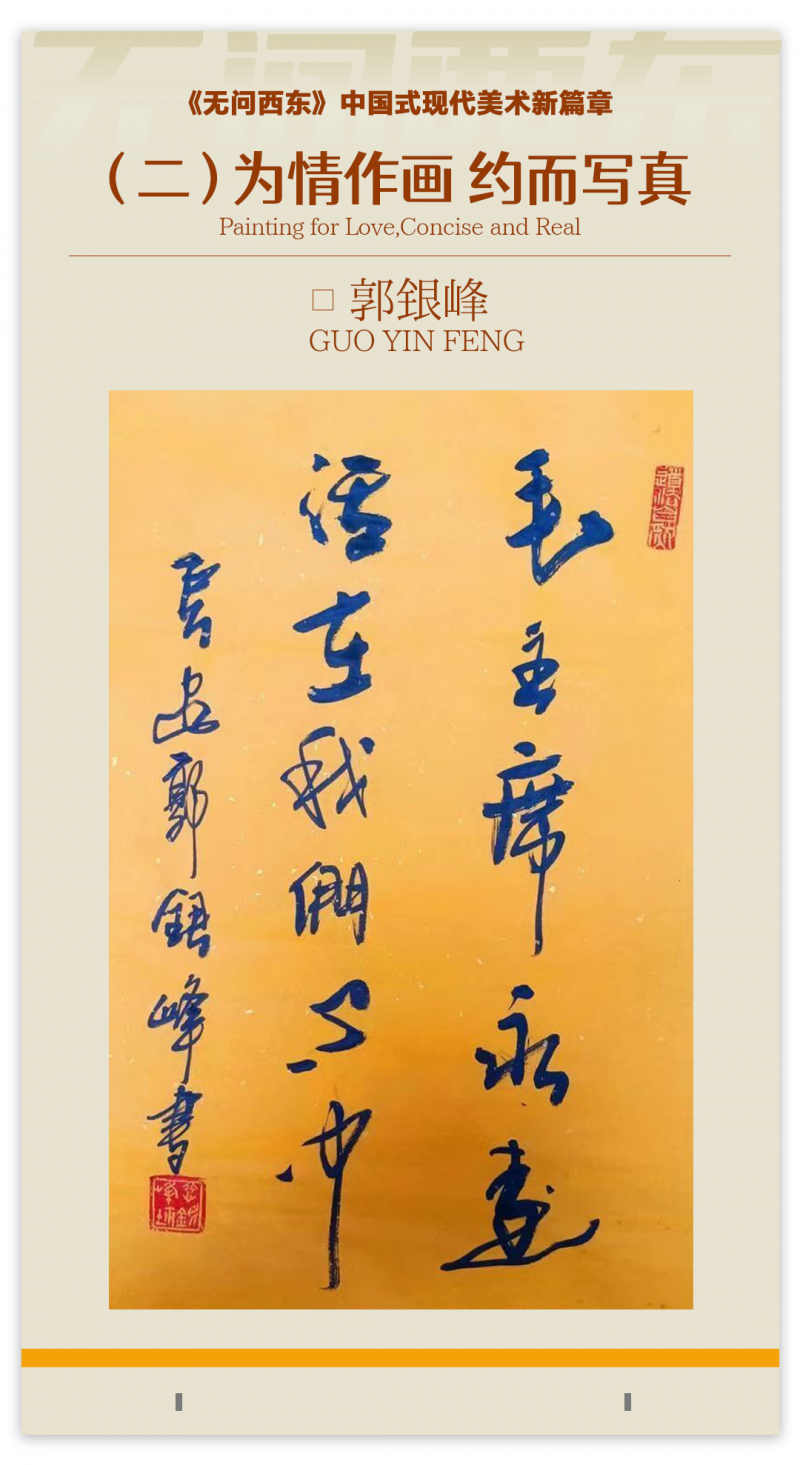 无问西东
《无问西东》中国式现代美术新篇章
（二）为情作画 约而写真
Painting for Love,Concise and Real
□ 郭银峰
GUO YIN FENG
毛主席永遠
活在我們心中
郭銀峰書